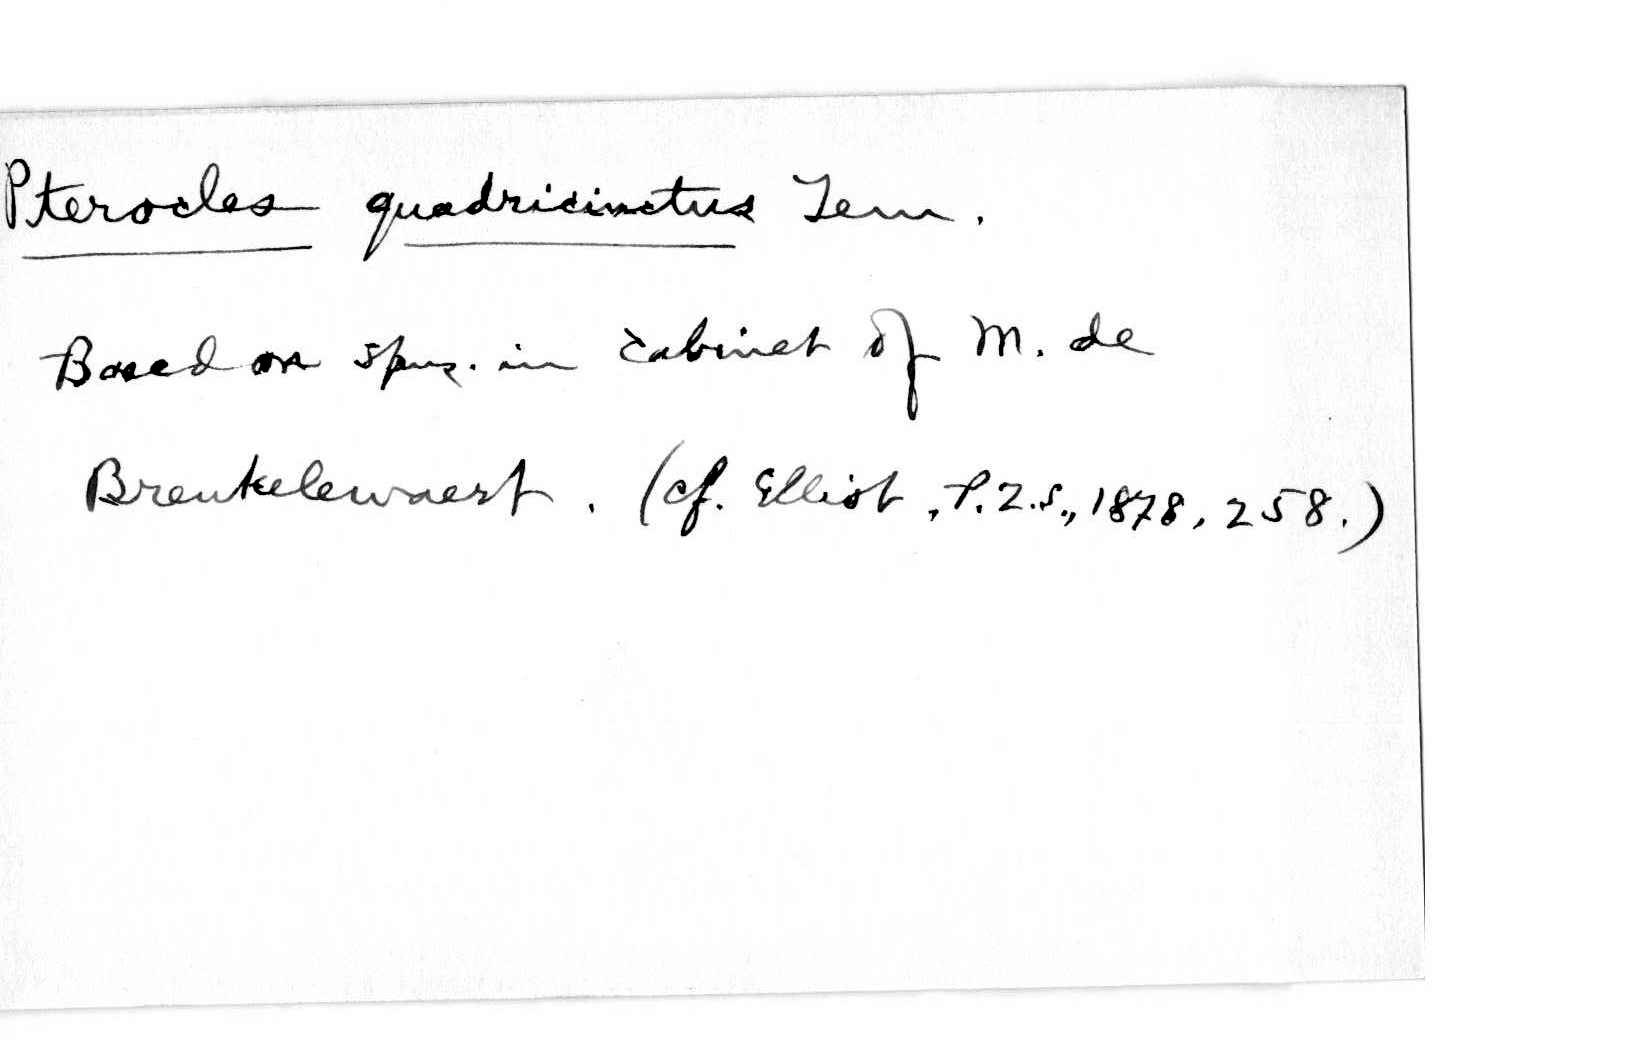 Pterocles quadricinctus Tem.
Based on spns. in cabinet of M. de
Breukelewaert. (cf. Elliot, P.Z.S., 1878, 258.)